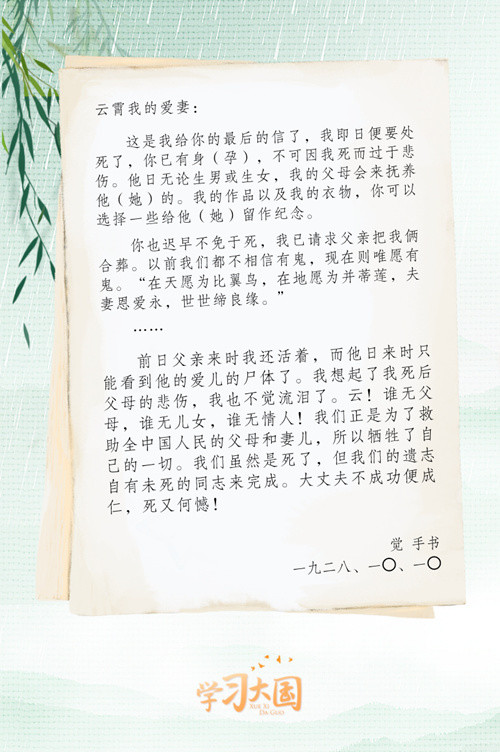 云霄我的爱妻：
这是我给你的最后的信了，我即日便要处
死了，你已有身（孕），不可因我死而过于悲
伤。他日无论生男或生女，我的父母会来抚养
他（她）的。我的作品以及我的衣物，你可以
选择一些给他（她）留作纪念。
你也迟早不免于死，我已请求父亲把我俩
合葬。以前我们都不相信有鬼，现在则唯愿有
鬼。“在天愿为比翼鸟，在地愿为并蒂莲，夫
妻恩爱永，世世缔良缘。”
……
前日父亲来时我还活着，而他日来时只
能看到他的爱儿的尸体了。我想起了我死后
父母的悲伤，我也不觉流泪了。云！谁无父
母，谁无儿女，谁无情人！我们正是为了救
助全中国人民的父母和妻儿，所以牺牲了自
己的一切。我们虽然是死了，但我们的遗志
自有未死的同志来完成。大丈夫不成功便成
仁，死又何憾！
觉 手书
一九二八、一〇、一〇
学习大国
XUE XI
DA GUO